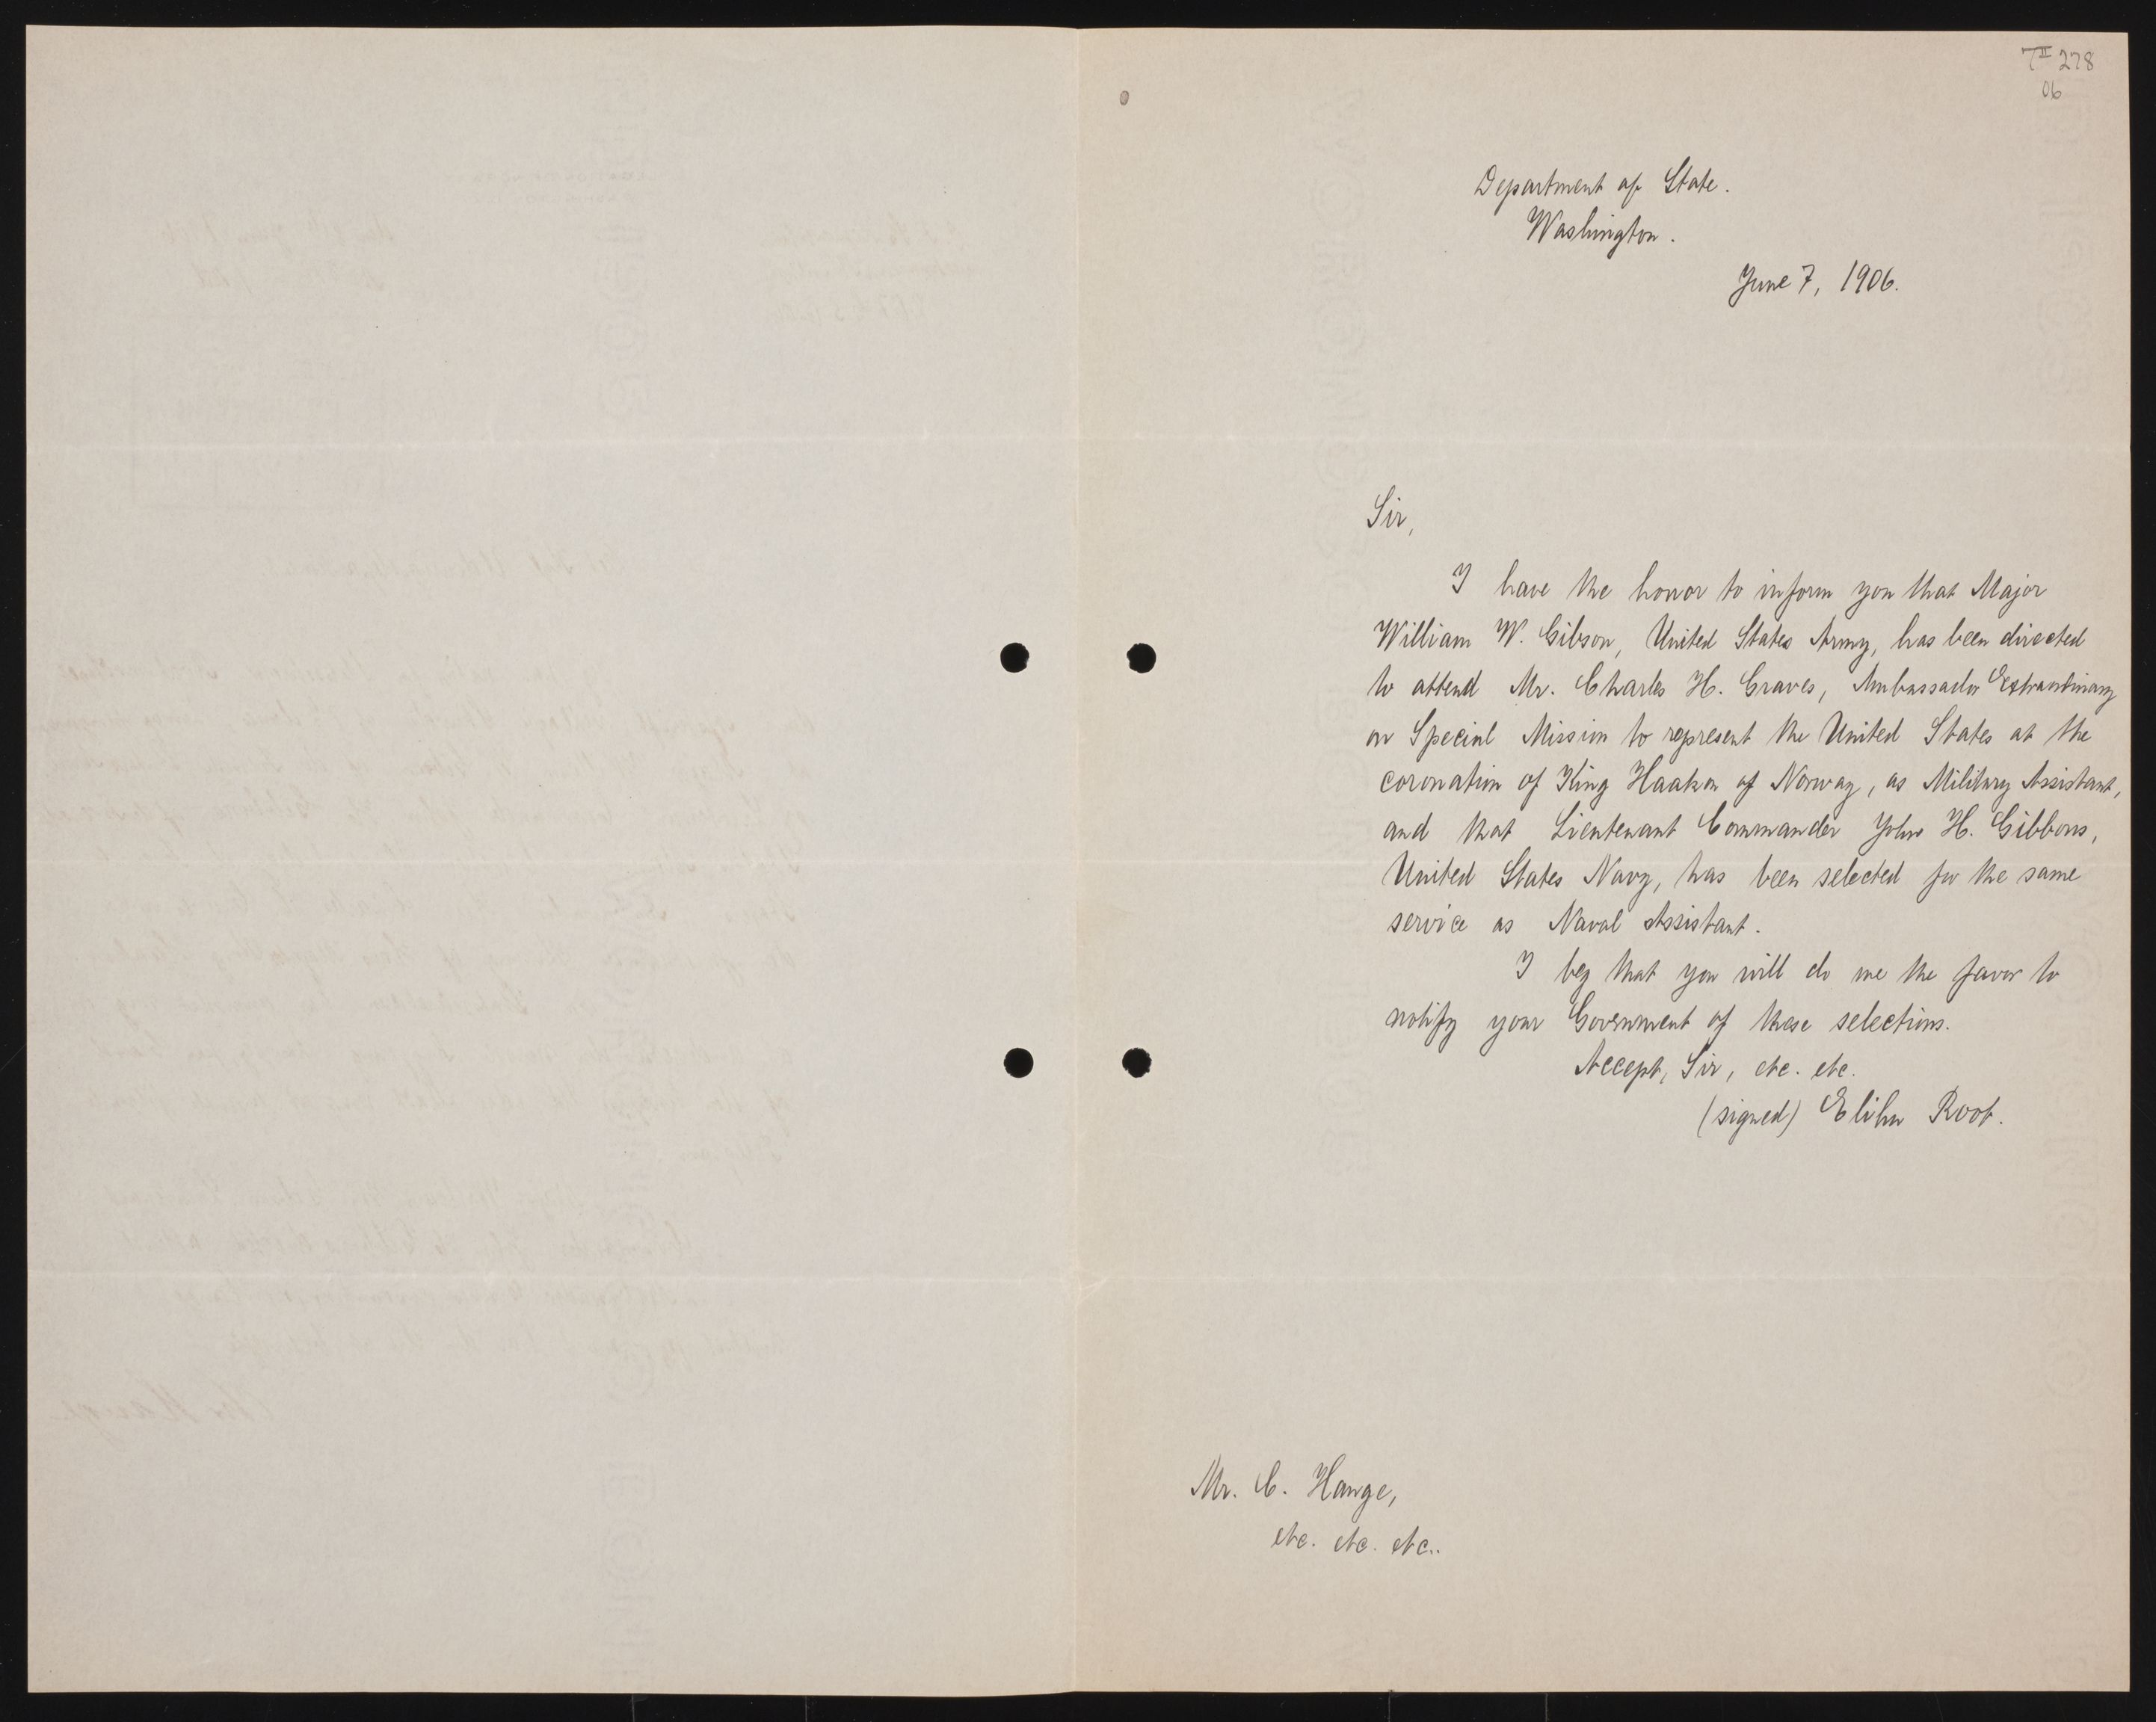 TII 278
06
Department of State.
Washington.
June 7, 1906.
Sir,
I have the honor to inform you that Major
William W. Gibson, United States Army, has been directed
to attend Mr. Charles H. Graves, Ambassador Extraordinary
on Special Mission to represent the United States at the
coronation of King Haakon of Norway, as Military Assistant,
and that Lieutenant Commander John H. Gibbons,
United States Navy, has been selected for the same
service as Naval Assistant.
I beg that you will do me the favor to
notify your Government of these selections.
Accept, Sir, etc. etc.
(signed) Elihu Root.
Mr. C. Hauge,
etc. etc. etc..